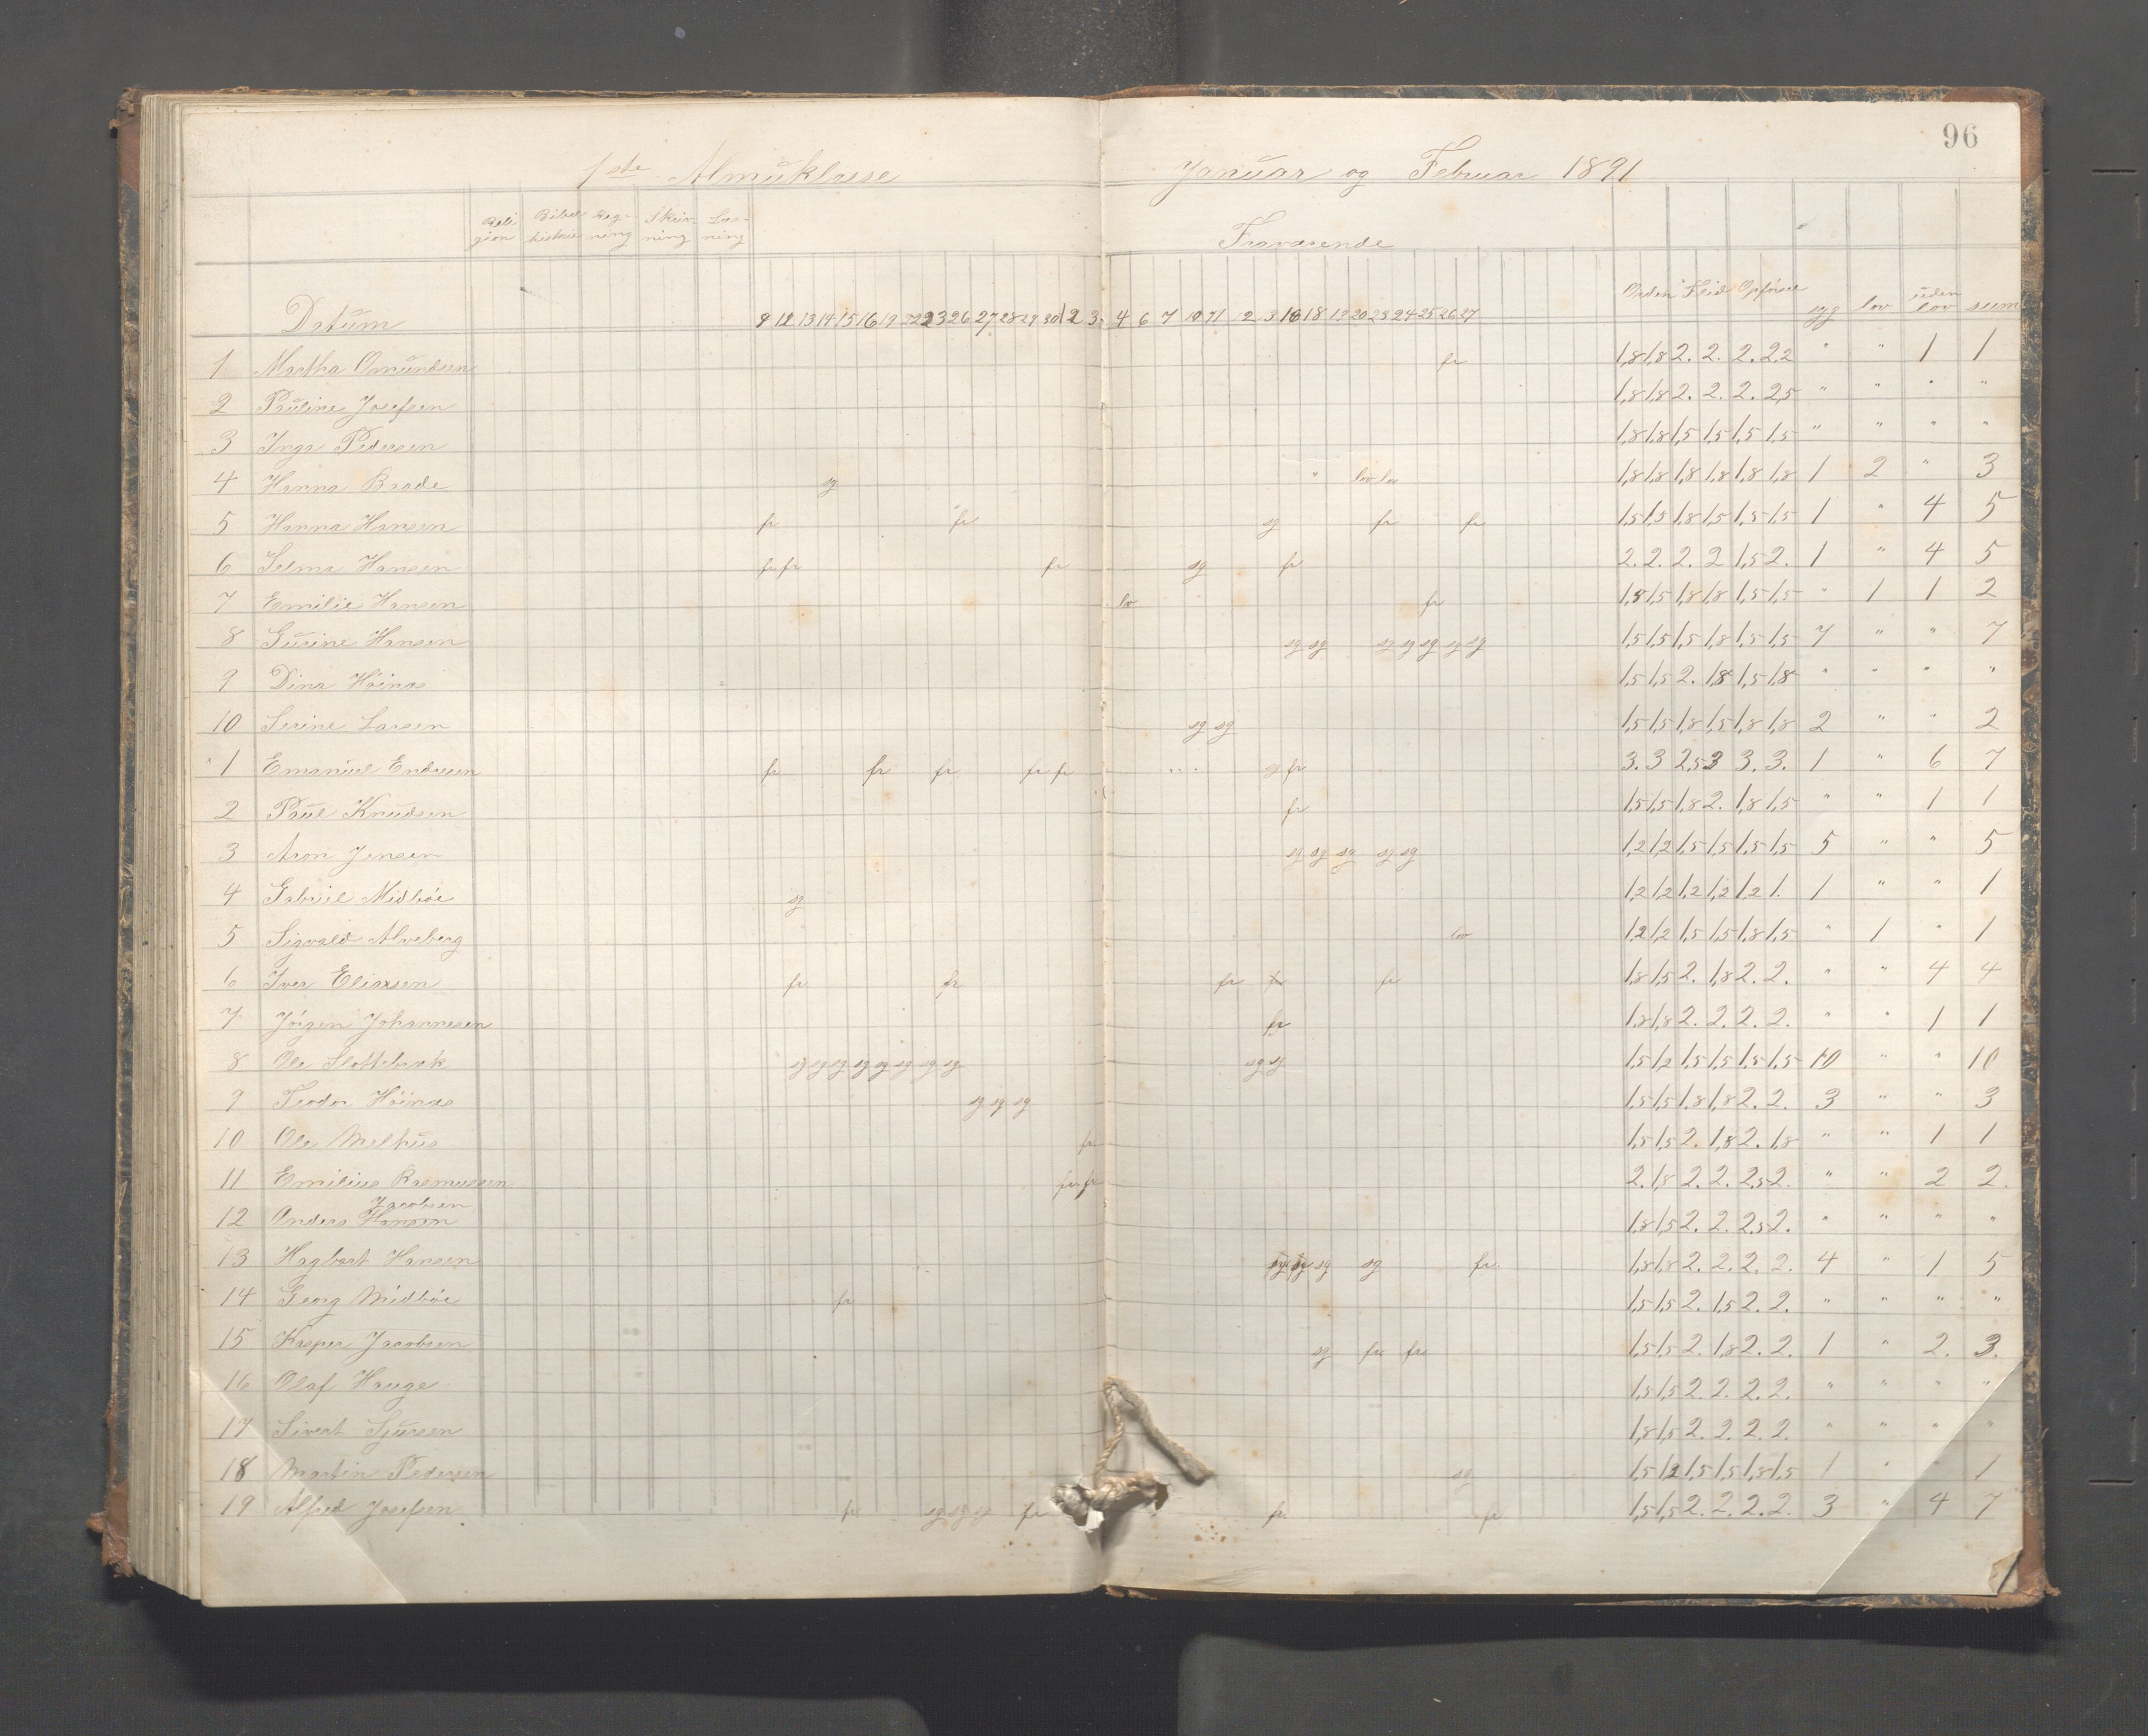 96
1ste Almuklasse Januar og Februar 1891
Reli gion Bibel historie Reg- ning Skriv- ning Læs- ning Fraværende
Datum 9 12 13 14 15 16 19 22 23 26 27 28 29 30 2 3 4 6 7 10 11 12 13 16 18 19 20 23 24 25 26 27 Orden Flid Opførsel syg lov uden lov sum
1 Martha Omundsen fr 1,8 1,8 2. 2. 2. 2,2 " " 1 1
2 Pauline Josefsen 1,8 1,8 2. 2. 2. 2,5 " " " "
3 Inga Pedersen 1,8 1,8 1,5 1,5 1,5 1,5 " " " "
4 Hanna Brade sg " lov lov 1,8 1,8 1,8 1,8 1,8 1,8 1 2 " 3
5 Hanna Hansen fr fr sg fr fr 1,5 1,5 1,8 1,5 1,5 1,5 1 " 4 5
6 Selma Hansen fr fr fr sg fr 2. 2. 2. 2 1,5 2. 1 " 4 5
7 Emilie Hansen lov fr 1,8 1,5 1,8 1,8 1,5 1,5 " 1 1 2
8 Gurine Hansen sg sg sg sg sg sg sg 1,5 1,5 1,5 1,8 1,5 1,5 7 " " 7
9 Dina Höinæs 1,5 1,5 2. 1,8 1,5 1,8 " " " "
10 Serine Larsen sg sg 1,5 1,5 1,8 1,5 1,8 1,8 2 " " 2
1 Emaniel Endresen fr fr fr fr fr sg fr 3. 3 2,5 3 3. 3. 1 " 6 7
2 Paul Knudsen fr 1,5 1,5 1,8 2. 1,8 1,5 " " 1 1
3 Aron Jensen sg sg sg sg sg 1,2 1,2 1,5 1,5 1,5 1,5 5 " " 5
4 Gabriel Midböe sg 1,2 1,2 1,2 1,2 1,2 1. 1 " " 1
5 Sigvald Alveberg lov 1,2 1,2 1,5 1,5 1,8 1,5 " 1 " 1
6 Iver Eliassen fr fr fr fr 1,8 1,5 2. 1,8 2. 2. " " 4 4
7 Jörgen Johannesen fr 1,8 1,8 2. 2. 2. 2. " " 1 1
8 Ole Slottebræk sg sg sg sg sg sg sg sg sg sg 1,5 1,2 1,5 1,5 1,5 1,5 10 " " 10
9 Teodor Höinæs sg sg sg 1,5 1,5 1,8 1,8 2. 2. 3 " " 3
10 Ole Melhus fr 1,5 1,5 2. 1,8 2. 1,8 " " 1 1
11 Emilius Rasmussen fr fr 2. 1,8 2. 2. 2,5 2. " " 2 2.
Jacobsen
12 Anders Hansen 1,8 1,5 2. 2. 2,5 2. " " " "
13 Hagbart Hansen sg sg sg sg fr. 1,8 1,8 2. 2. 2. 2. 4 " 1 5
14 Georg Midböe fr 1,5 1,5 2. 1,5 2. 2. " " " "
15 Kasper Jacobsen sg fr fr 1,5 1,5 2. 1,8 2. 2. 1 " 2. 3.
16 Olaf Hauge 1,5 1,5 2. 2. 2. 2. " " " "
17 Sivert Sjursen 1,8 1,5 2. 2. 2. 2. " " " "
18 Martin Pedersen sg 1,5 1,2 1,5 1,5 1,8 1,5 1 " " 1
19 Alfred Josefsen fr sg sg sg fr fr fr 1,5 1,5 2. 2. 2. 2. 3 " 4 7